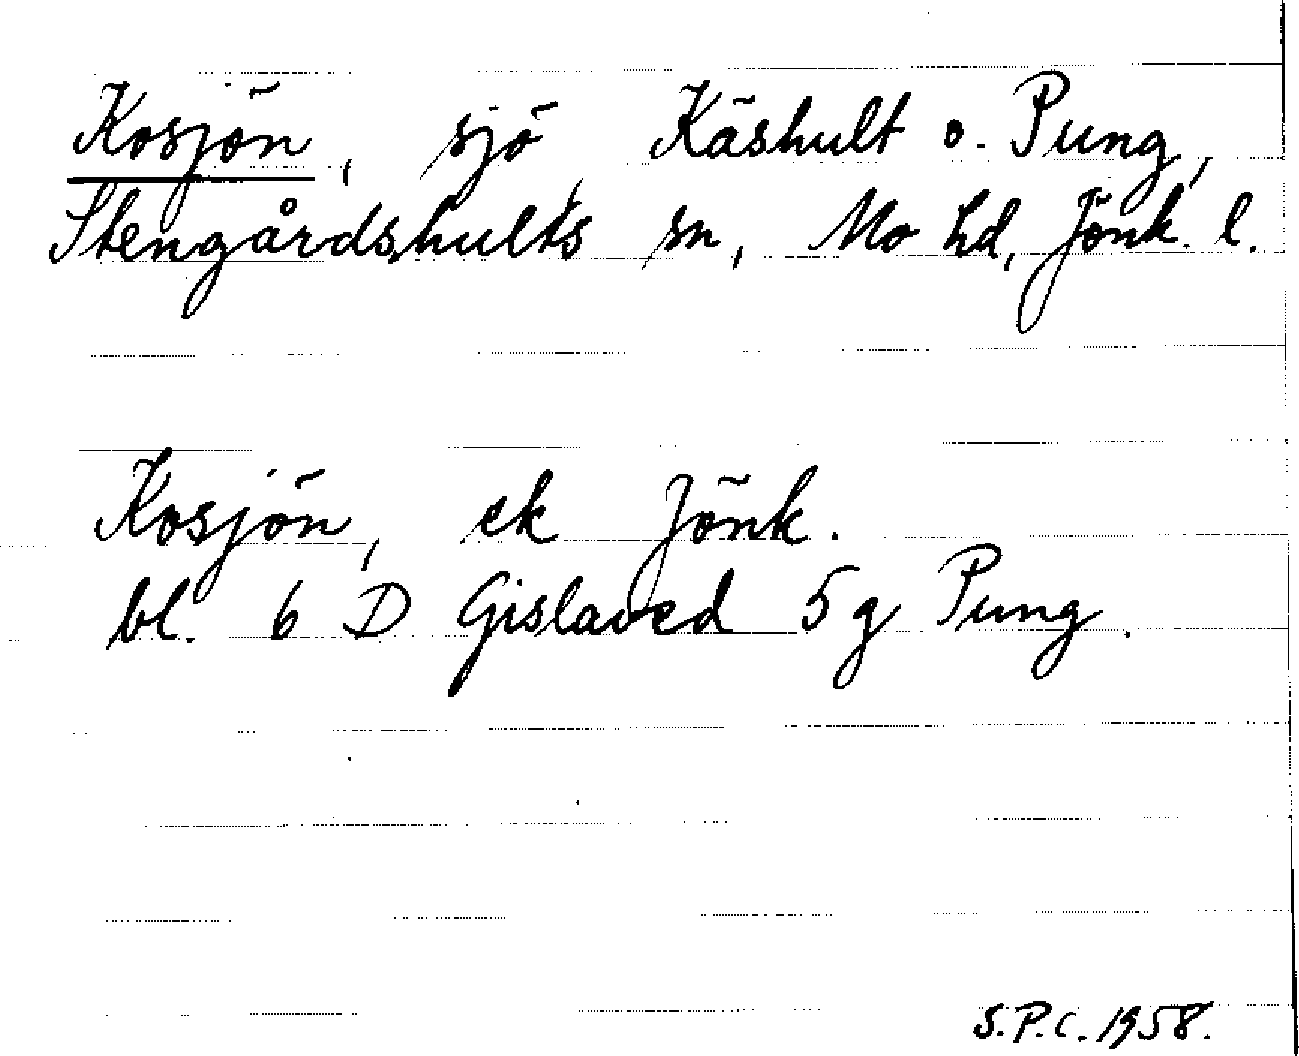 Kosjön, sjö, Käshult o. Pung,
Stengårdshults sn, Mo hd, Jönk. l.
Kosjön, ek Jönk.
bl. 6 D Gislaved 5 g Pung.
S.P.C. 1958.